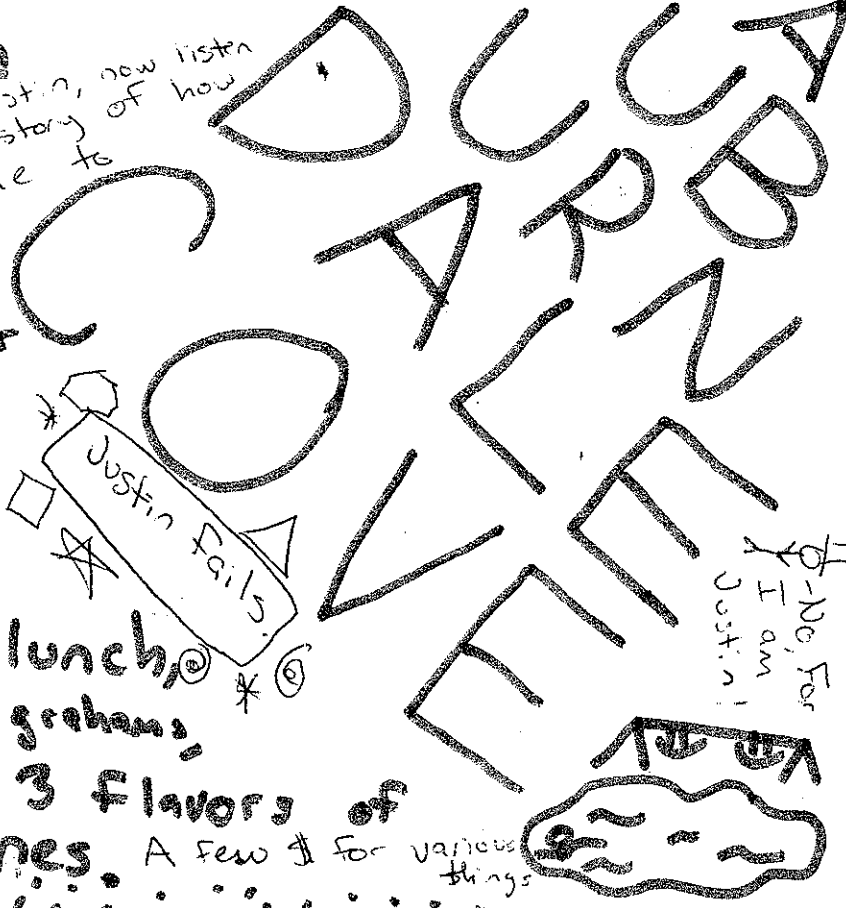 stin, now listen
story of how
e to
A
UB
URN
DALE
COVE
Justin Fails.
-No, For
I am
Justin!
lunch,
grahams,
3 Flavors of
nes. A few $ for various
things